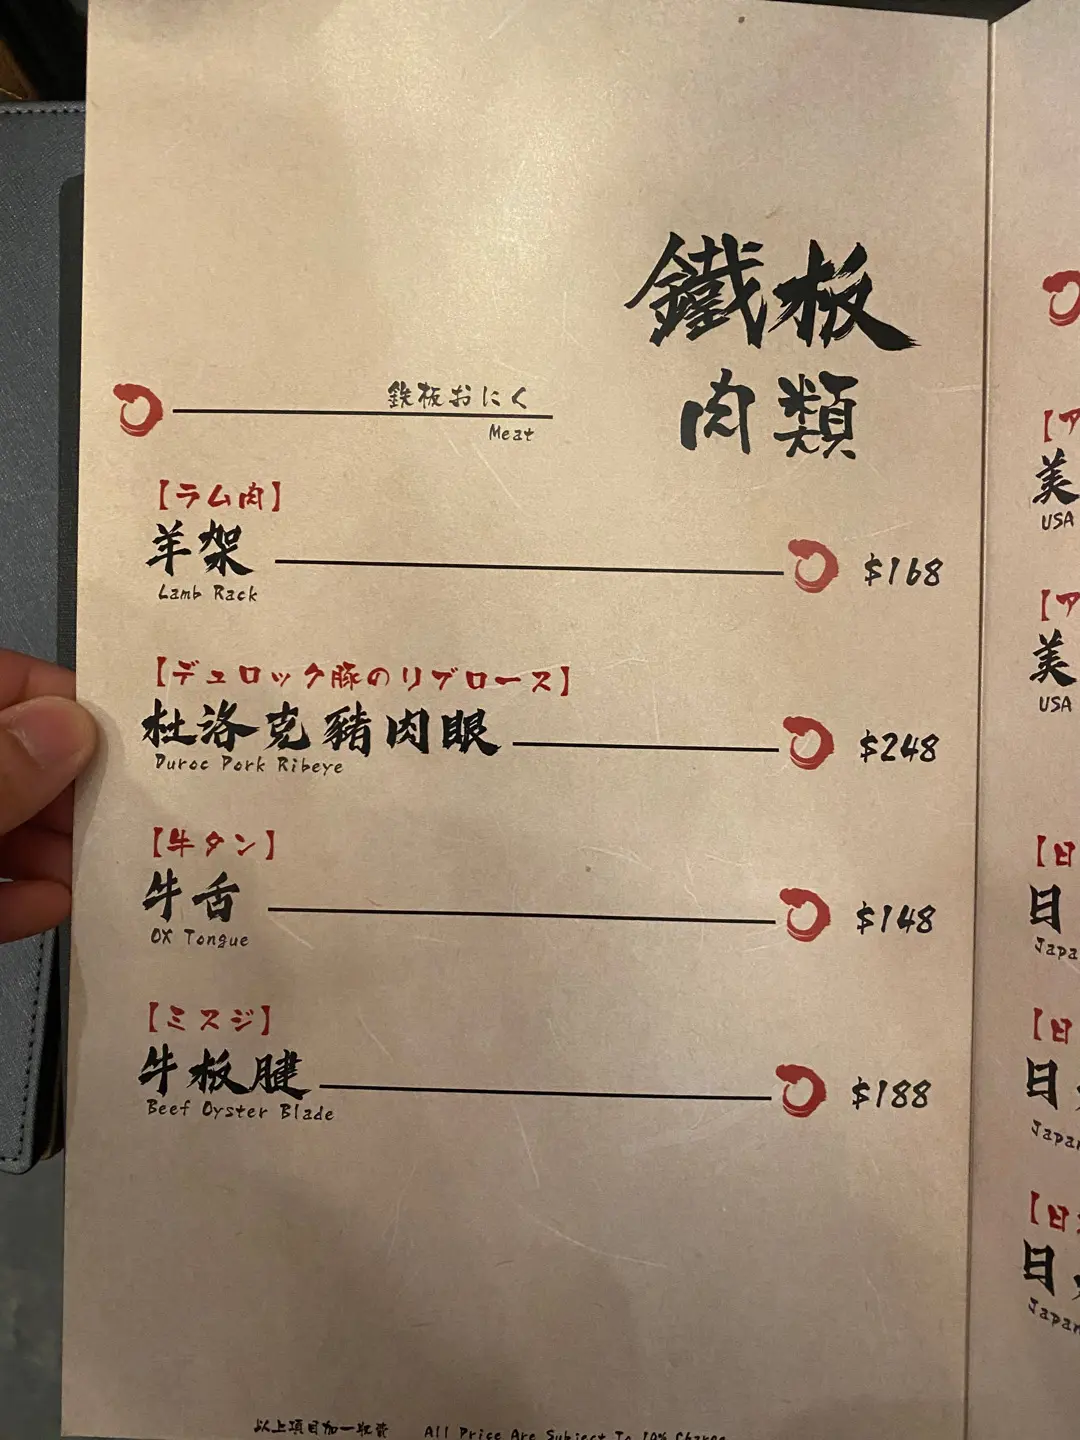 鐵板
肉類
鉄板おにく
Meat
【ラム肉】
羊架
$168
Lamb Rack
【デュロック豚のリブロース】
杜洛克豬肉眼
$248
Duroc Pork Ribeye
【牛タン】
牛舌
$148
OX Tongue
【ミスジ】
牛板腱
$188
Beef Oyster Blade
以上項目加一收費 All Price Are Subject To 10% Charge
【ア
美
USA
【ア
美
USA
【日
日
Japa
【日
日
Japan
【日
日
Japan